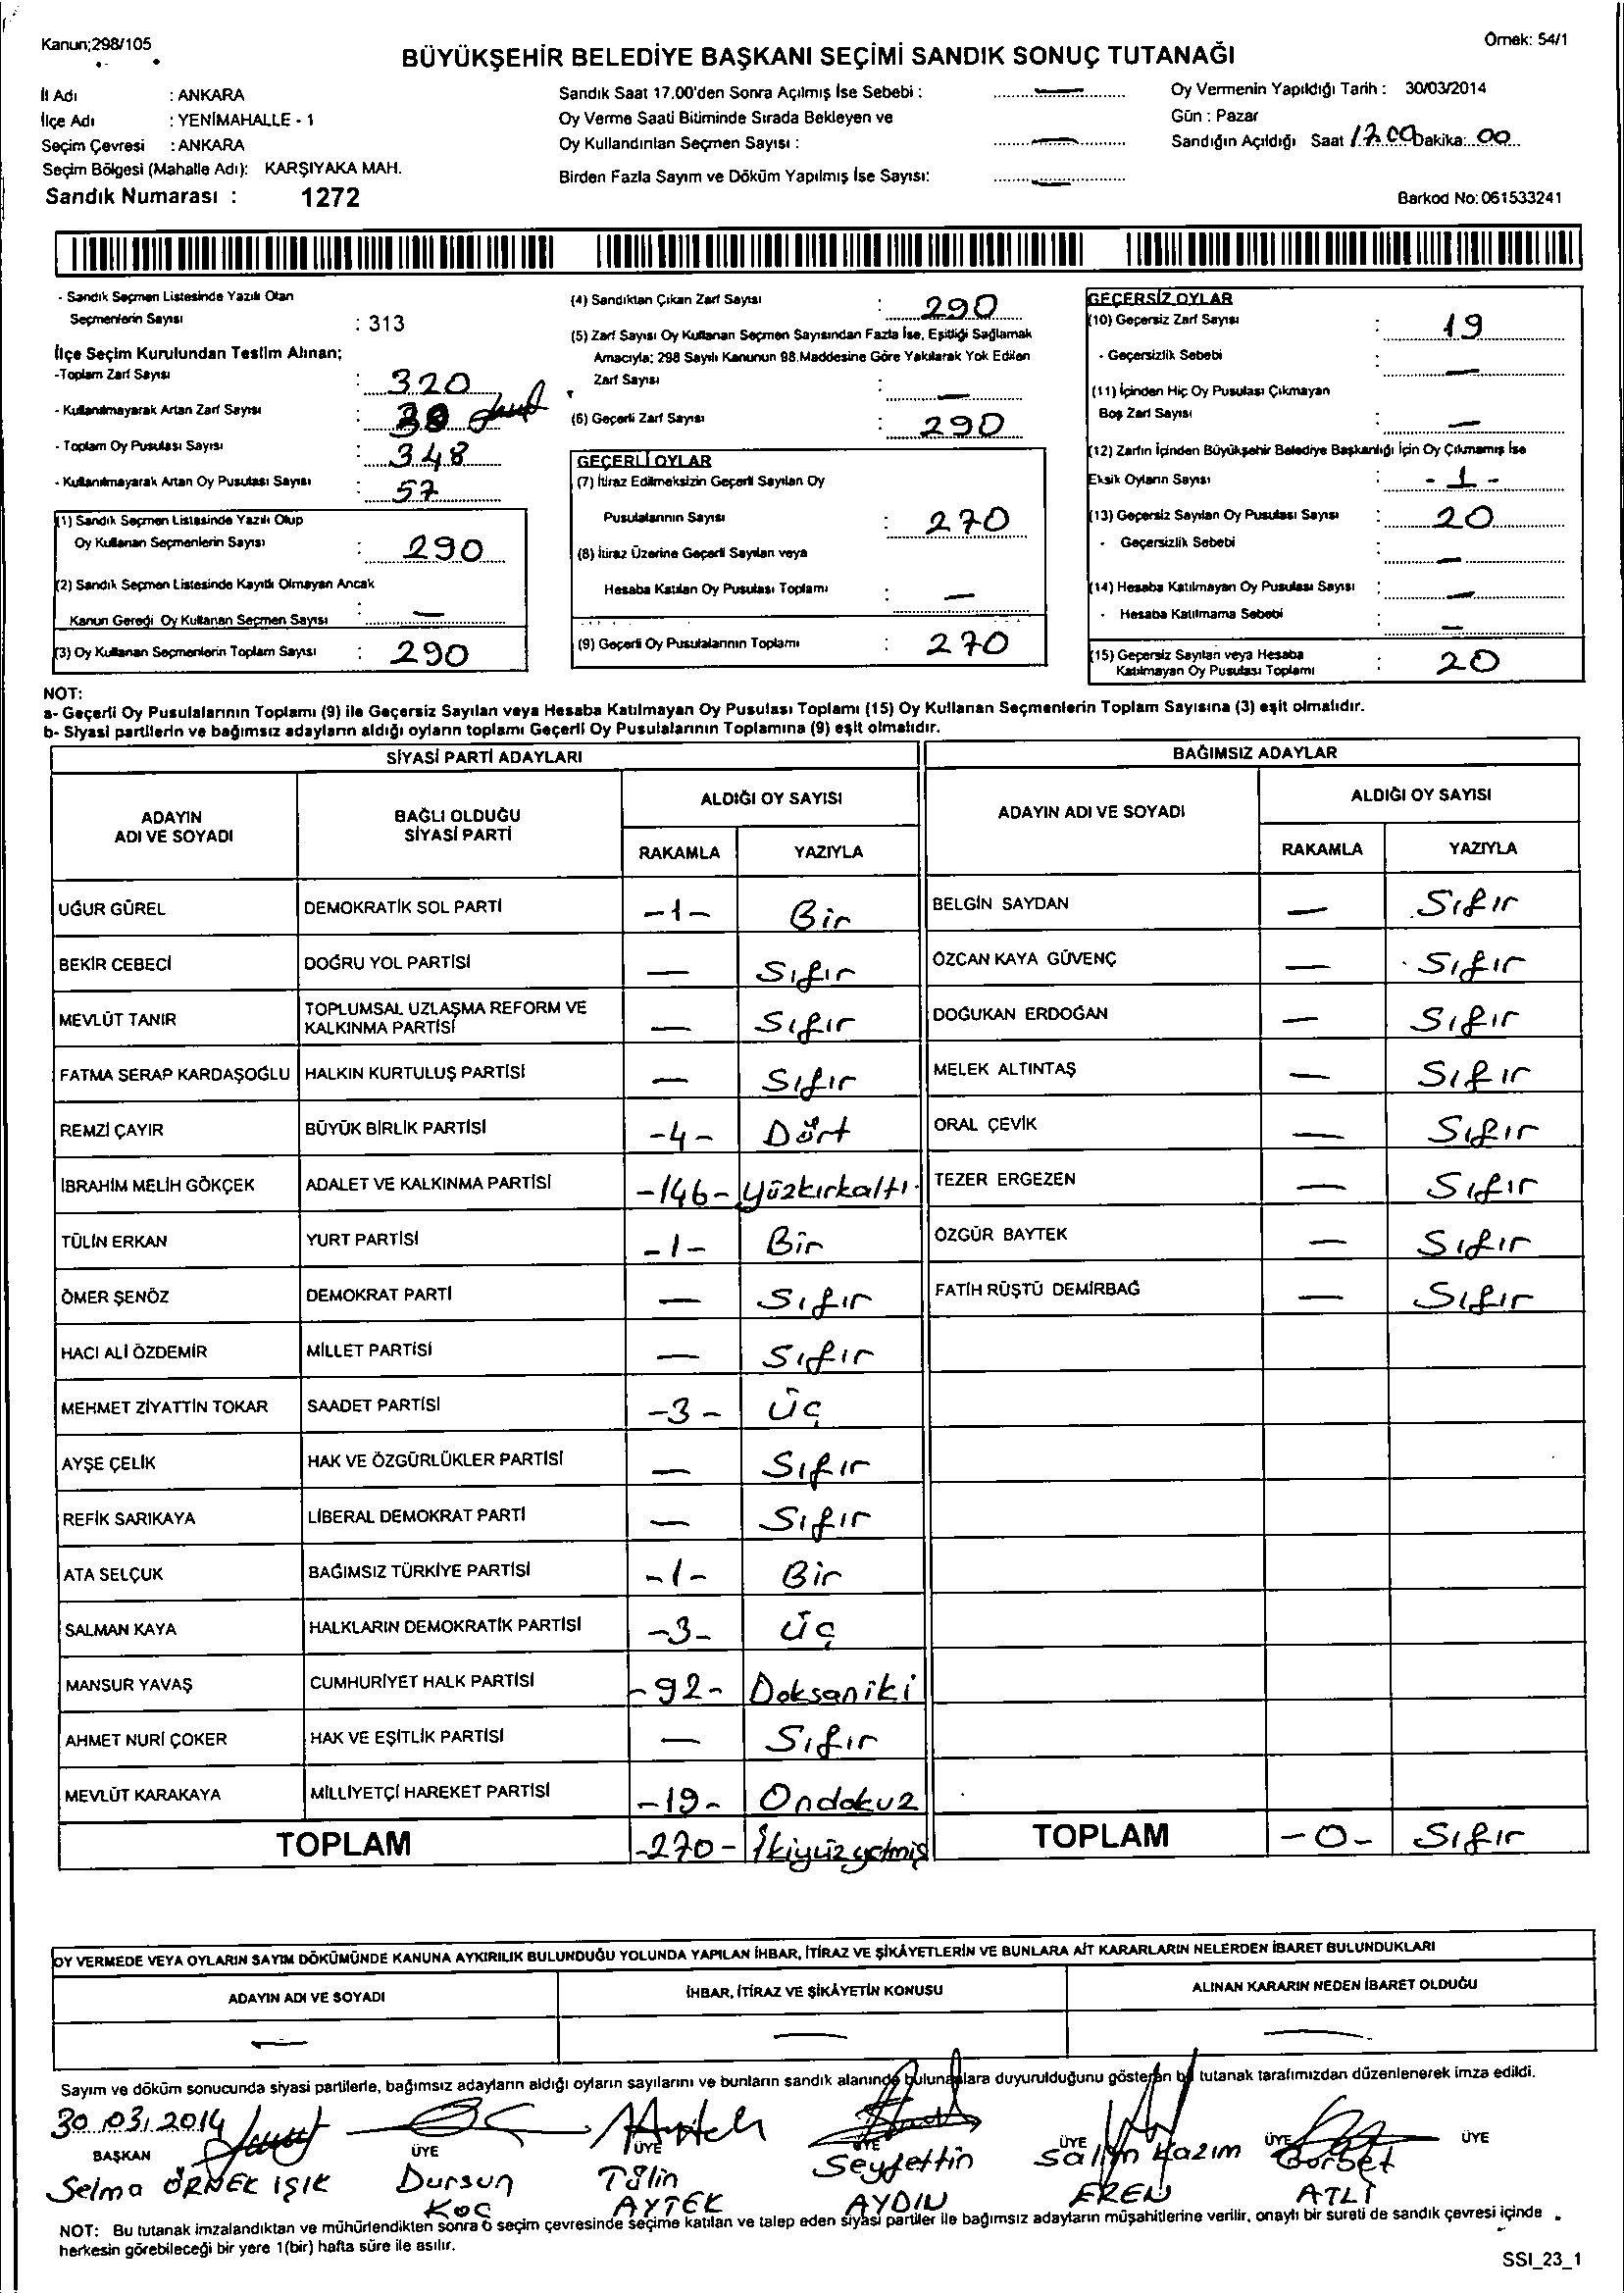 Kanun;298/105
Örnek: 54/1
BÜYÜKŞEHİR BELEDİYE BAŞKANI SEÇİMİ SANDIK SONUÇ TUTANAĞI
İl Adı : ANKARA
İlçe Adı : YENİMAHALLE - 1
Seçim Çevresi : ANKARA
Seçim Bölgesi (Mahalle Adı): KARŞIYAKA MAH.
Sandık Numarası : 1272
Sandık Saat 17.00'den Sonra Açılmış İse Sebebi : —
Oy Verme Saati Bitiminde Sırada Bekleyen ve
Oy Kullandırılan Seçmen Sayısı : —
Birden Fazla Sayım ve Döküm Yapılmış İse Sayısı: —
Oy Vermenin Yapıldığı Tarih : 30/03/2014
Gün : Pazar
Sandığın Açıldığı Saat 17.00 Dakika: 00
Barkod No: 061533241
- Sandık Seçmen Listesinde Yazılı Olan
Seçmenlerin Sayısı : 313
İlçe Seçim Kurulundan Teslim Alınan;
-Toplam Zarf Sayısı : 320
- Kullanılmayarak Artan Zarf Sayısı : 30
- Toplam Oy Pusulası Sayısı : 348
- Kullanılmayarak Artan Oy Pusulası Sayısı : 57
(1) Sandık Seçmen Listesinde Yazılı Olup
Oy Kullanan Seçmenlerin Sayısı : 290
(2) Sandık Seçmen Listesinde Kayıtlı Olmayan Ancak
Kanun Gereği Oy Kullanan Seçmen Sayısı : —
(3) Oy Kullanan Seçmenlerin Toplam Sayısı : 290
(4) Sandıktan Çıkan Zarf Sayısı : 290
(5) Zarf Sayısı Oy Kullanan Seçmen Sayısından Fazla İse, Eşitliği Sağlamak
Amacıyla; 298 Sayılı Kanunun 98.Maddesine Göre Yakılarak Yok Edilen
Zarf Sayısı : —
(6) Geçerli Zarf Sayısı : 290
GEÇERLİ OYLAR
(7) İtiraz Edilmeksizin Geçerli Sayılan Oy
Pusulalarının Sayısı : 270
(8) İtiraz Üzerine Geçerli Sayılan veya
Hesaba Katılan Oy Pusulası Toplamı : —
(9) Geçerli Oy Pusulalarının Toplamı : 270
GEÇERSİZ OYLAR
(10) Geçersiz Zarf Sayısı : 19
- Geçersizlik Sebebi : —
(11) İçinden Hiç Oy Pusulası Çıkmayan
Boş Zarf Sayısı : —
(12) Zarfın İçinden Büyükşehir Belediye Başkanlığı İçin Oy Çıkmamış İse
Eksik Oyların Sayısı : - 1 -
(13) Geçersiz Sayılan Oy Pusulası Sayısı : 20
- Geçersizlik Sebebi : —
(14) Hesaba Katılmayan Oy Pusulası Sayısı : —
- Hesaba Katılmama Sebebi : —
(15) Geçersiz Sayılan veya Hesaba
Katılmayan Oy Pusulası Toplamı : 20
NOT:
a- Geçerli Oy Pusulalarının Toplamı (9) ile Geçersiz Sayılan veya Hesaba Katılmayan Oy Pusulası Toplamı (15) Oy Kullanan Seçmenlerin Toplam Sayısına (3) eşit olmalıdır.
b- Siyasi partilerin ve bağımsız adayların aldığı oyların toplamı Geçerli Oy Pusulalarının Toplamına (9) eşit olmalıdır.
SİYASİ PARTİ ADAYLARI
ADAYIN ADI VE SOYADI
BAĞLI OLDUĞU SİYASİ PARTİ
ALDIĞI OY SAYISI
RAKAMLA YAZIYLA
UĞUR GÜREL DEMOKRATİK SOL PARTİ -1- Bir
BEKİR CEBECİ DOĞRU YOL PARTİSİ — Sıfır
MEVLÜT TANIR TOPLUMSAL UZLAŞMA REFORM VE KALKINMA PARTİSİ — Sıfır
FATMA SERAP KARDAŞOĞLU HALKIN KURTULUŞ PARTİSİ — Sıfır
REMZİ ÇAYIR BÜYÜK BİRLİK PARTİSİ -4- Dört
İBRAHİM MELİH GÖKÇEK ADALET VE KALKINMA PARTİSİ -146- Yüzkırkaltı
TÜLİN ERKAN YURT PARTİSİ -1- Bir
ÖMER ŞENÖZ DEMOKRAT PARTİ — Sıfır
HACI ALİ ÖZDEMİR MİLLET PARTİSİ — Sıfır
MEHMET ZİYATTİN TOKAR SAADET PARTİSİ -3- Üç
AYŞE ÇELİK HAK VE ÖZGÜRLÜKLER PARTİSİ — Sıfır
REFİK SARIKAYA LİBERAL DEMOKRAT PARTİ — Sıfır
ATA SELÇUK BAĞIMSIZ TÜRKİYE PARTİSİ -1- Bir
SALMAN KAYA HALKLARIN DEMOKRATİK PARTİSİ -3- Üç
MANSUR YAVAŞ CUMHURİYET HALK PARTİSİ -92- Doksaniki
AHMET NURİ ÇOKER HAK VE EŞİTLİK PARTİSİ — Sıfır
MEVLÜT KARAKAYA MİLLİYETÇİ HAREKET PARTİSİ -19- Ondokuz
TOPLAM -270- İkiyüzyetmiş
BAĞIMSIZ ADAYLAR
ADAYIN ADI VE SOYADI
ALDIĞI OY SAYISI
RAKAMLA YAZIYLA
BELGİN SAYDAN — Sıfır
ÖZCAN KAYA GÜVENÇ — Sıfır
DOĞUKAN ERDOĞAN — Sıfır
MELEK ALTINTAŞ — Sıfır
ORAL ÇEVİK — Sıfır
TEZER ERGEZEN — Sıfır
ÖZGÜR BAYTEK — Sıfır
FATİH RÜŞTÜ DEMİRBAĞ — Sıfır
TOPLAM -0- Sıfır
OY VERMEDE VEYA OYLARIN SAYIM DÖKÜMÜNDE KANUNA AYKIRILIK BULUNDUĞU YOLUNDA YAPILAN İHBAR, İTİRAZ VE ŞİKÂYETLERİN VE BUNLARA AİT KARARLARIN NELERDEN İBARET BULUNDUKLARI
ADAYIN ADI VE SOYADI İHBAR, İTİRAZ VE ŞİKÂYETİN KONUSU ALINAN KARARIN NEDEN İBARET OLDUĞU
— — —
Sayım ve döküm sonucunda siyasi partilerle, bağımsız adayların aldığı oyların sayılarını ve bunların sandık alanında bulunanlara duyurulduğunu gösteren bu tutanak tarafımızdan düzenlenerek imza edildi.
30.03.2014
BAŞKAN ÜYE ÜYE ÜYE ÜYE ÜYE ÜYE
Selma ÖRNEK IŞIK Dursun Tülin Seyfettin Kazım
KOÇ AYTEK AYDIN EREN ATLI
NOT: Bu tutanak imzalandıktan ve mühürlendikten sonra o seçim çevresinde seçime katılan ve talep eden siyasi partiler ile bağımsız adayların müşahitlerine verilir, onaylı bir sureti de sandık çevresi içinde
herkesin görebileceği bir yere 1(bir) hafta süre ile asılır.
SSI_23_1